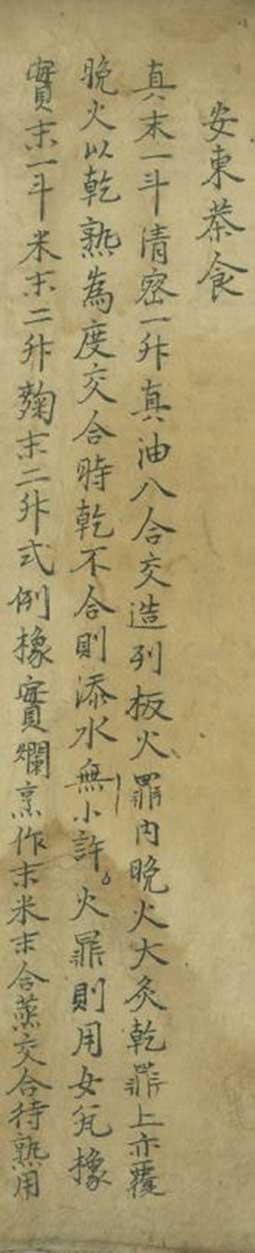 安東茶食
真末一斗清密一升真油八合交造列板火罪內晩火大灸乾罪上亦覆
晩火以乾熟為度交合時乾不合則添水無小許火罪則用女瓦橡
實末一斗米末二升麴末二升式例橡實爛烹作末米末合蒸交合待熟用